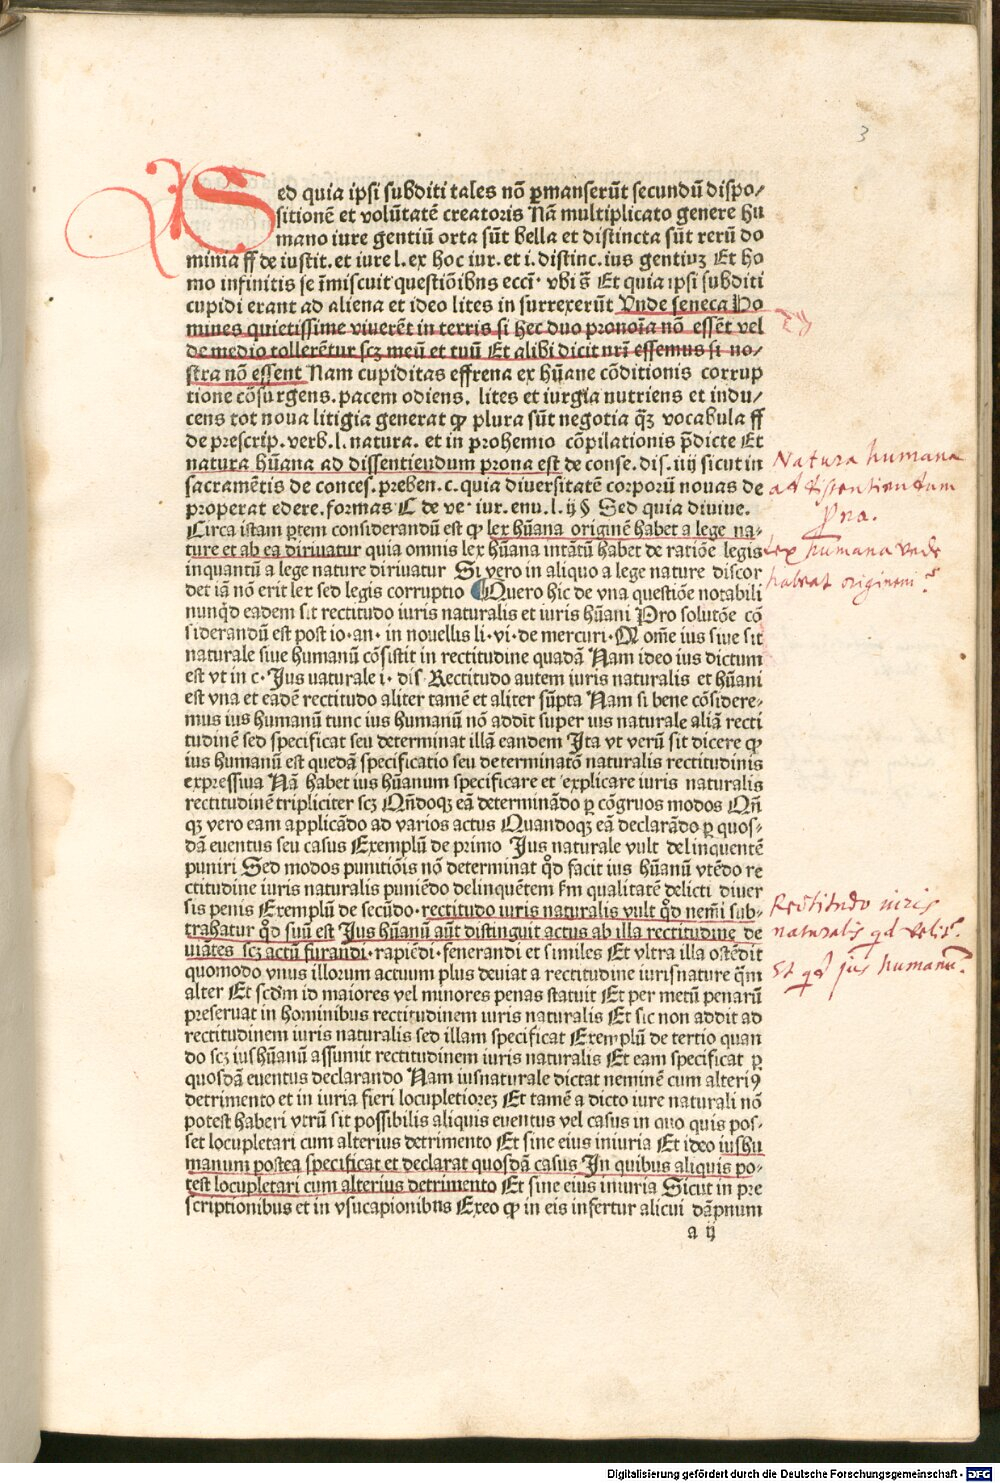 3
Sed quia ipsi subditi tales nō ꝑmanserūt secundū dispo/
sitionē et volūtatē creatoris Nā multiplicato genere hu
mano iure gentiū orta sūt bella et distincta sūt rerū do
minia ff de iustit. et iure l. ex hoc iur. et i. distinc. ius gentiuꝫ Et ho
mo infinitis se īmiscuit questiōibns ecci· vbi s̄ Et quia ipsi subditi
cupidi erant ad aliena et ideo lites in surrexerūt Vnde seneca Ho
mines quietissime viuerēt in terris si hec duo pronoīa nō essēt vel
de medio tollerētur scꝫ meū et tuū Et alibi dicit nr̄i essemus si no/
stra nō essent Nam cupiditas effrena ex hūane cōditionis corrup
tione cōsurgens. pacem odiens. lites et iurgia nutriens et indu/
cens tot noua litigia generat ꝙ plura sūt negotia q̄ꝫ vocabula ff
de prescrip. verb. l. natura. et in prohemio cōpilationis p̄dicte Et
natura hūana ad dissentiendum prona est de conse. dis. iiij sicut in
sacramētis de conces. preben. c. quia diuersitatē corporū nouas de
properat edere. formas C de ve· iur. enu. l. ij § Sed quia diuine.
Circa istam ꝑtem considerandū est ꝙ lex hūana originē habet a lege na-
ture et ab ea diriuatur quia omnis lex hūana intātū habet de ratiōe legis
inquantū a lege nature diriuatur Si vero in aliquo a lege nature discor
det iā nō erit lex sed legis corruptio Quero hic de vna questiōe notabili
nunq̄d eadem sit rectitudo iuris naturalis et iuris hūani Pro solutōe cō
siderandū est post io·an· in nouellis li·vi·de mercuri· Q omē ius siue sit
naturale siue humanū cōsistit in rectitudine quadā Nam ideo ius dictum
est vt in c· Jus uaturale i· dis· Rectitudo autem iuris naturalis et hūani
est vna et eadē rectitudo aliter tamē et aliter sūpta Nam si bene cōsidere-
mus ius humanū tunc ius humanū nō addit super ius naturale aliā recti
tudinē sed specificat seu determinat illā eandem Jta vt verū sit dicere ꝙ
ius humanū est quedā specificatio seu determinatō naturalis rectitudinis
expressiua Nā habet ius hūanum specificare et explicare iuris naturalis
rectitudinē tripliciter scꝫ Qn̄doqꝫ eā determinādo ꝑ cōgruos modos Qn̄
qꝫ vero eam applicādo ad varios actus Quandoqꝫ eā declarādo ꝑ quos-
dā euentus seu casus Exemplū de primo Jus naturale vult delinquentē
puniri Sed modos punitiōis nō determinat qd̄ facit ius hūanū vtēdo re
ctitudine iuris naturalis puniēdo delinquētem ẜm qualitatē delicti diuer
sis penis Exemplū de secūdo·rectitudo iuris naturalis vult qd̄ nemī sub-
trahatur qd̄ suū est Jus hūanū aūt distinguit actus ab illa rectitudine de
uiātes scꝫ actū furandi·rapiēdi·fenerandi et similes Et vltra illa ostēdit
quomodo vnus illorum actuum plus deuiat a rectitudine iurisnature q̄m
alter Et scd̄m id maiores vel minores penas statuit Et per metū penarū
preseruat in hominibus rectitudinem iuris naturalis Et sic non addit ad
rectitudinem iuris naturalis sed illam specificat Exemplū de tertio quan
do scꝫ ius hūanū assumit rectitudinem iuris naturalis Et eam specificat ꝑ
quosdā euentus declarando Nam iusnaturale dictat neminē cum alteriꝰ
detrimento et in iuria fieri locupletioreꝫ Et tamē a dicto iure naturali nō
potest haberi vtrū sit possibilis aliquis euentus vel casus in quo quis pos-
set locupletari cum alterius detrimento Et sine eius iniuria Et ideo iushu
manum postea specificat et declarat quosdā casus Jn quibus aliquis po-
test locupletari cum alterius detrimento Et sine eius iniuria Sicut in pre
scriptionibus et in vsucapionibns Exeo ꝙ in eis infertur alicui dāpnum
a ij
Natura humana
ad dissentiendum
prona.
Lex humana vnde
habeat originem?
Rectitudo iuris
naturalis qd velit.
Et qd jus humanū.
Digitalisierung gefördert durch die Deutsche Forschungsgemeinschaft - DFG